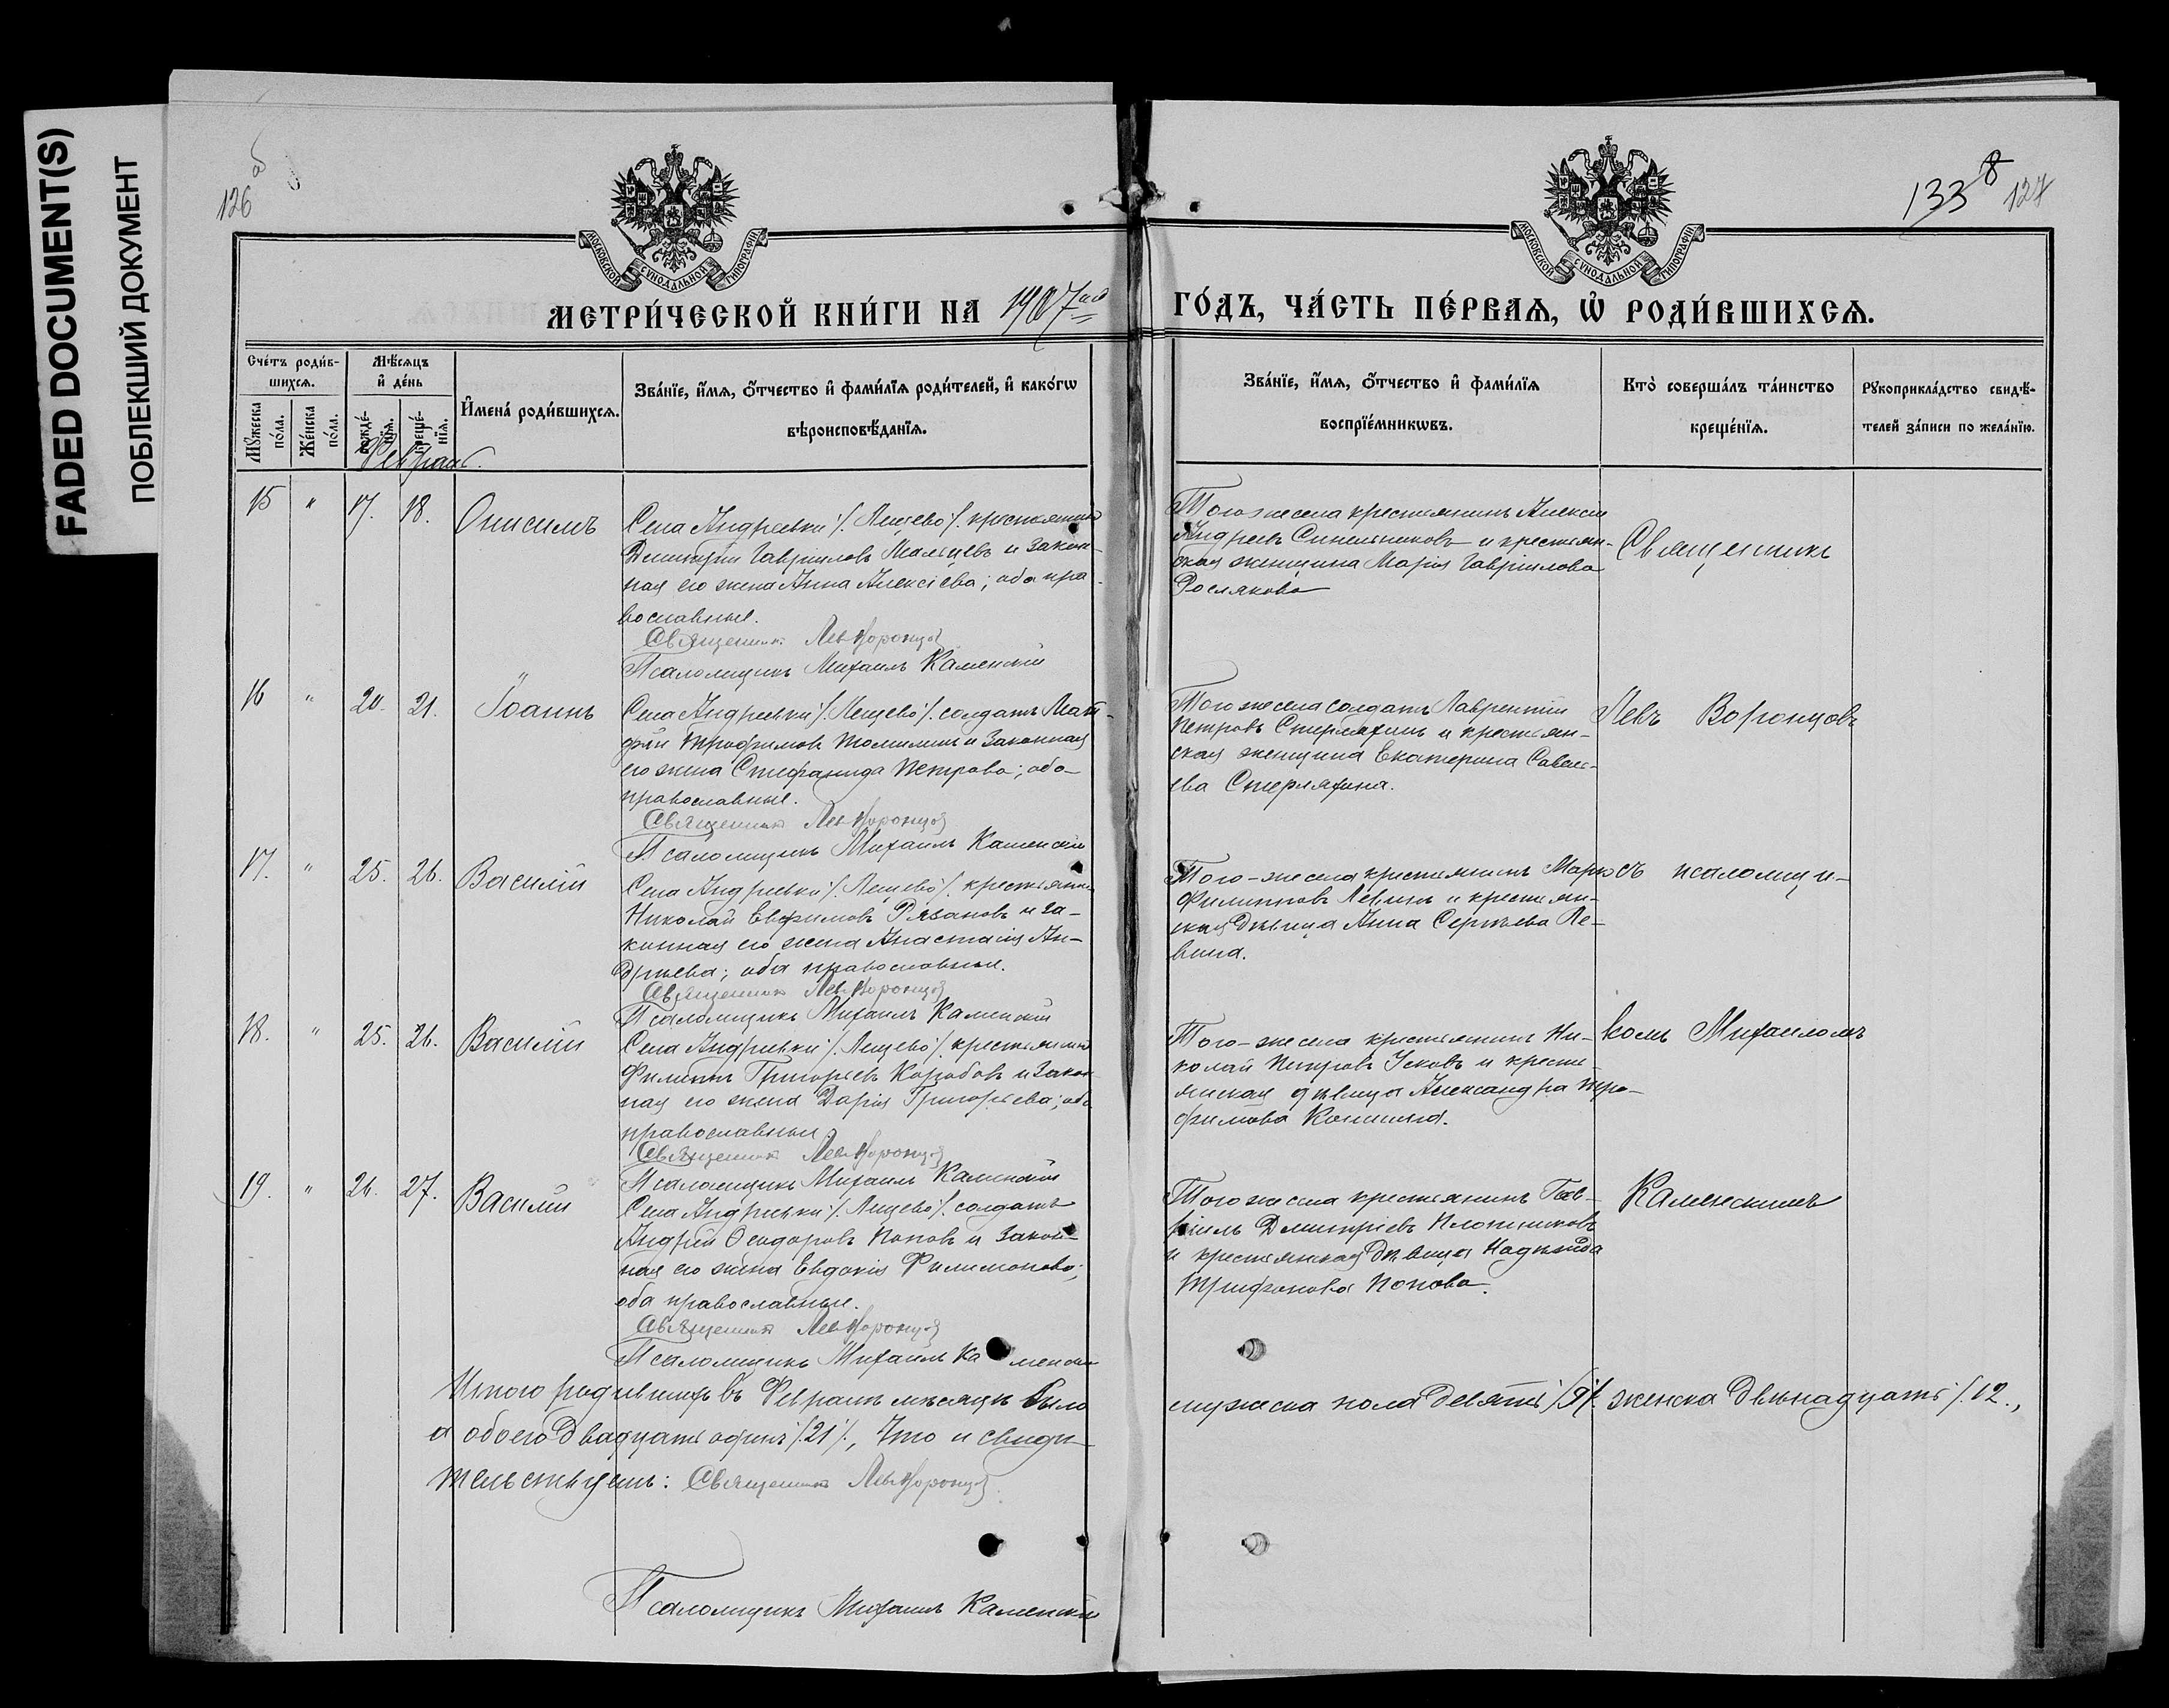 FADED DOCUMENT(S)
ПОБЛЕКШИЙ ДОКУМЕНТ
126
133
127
МОСКОВСКОЙ СѴНОДАЛЬНОЙ ТИПОГРАФІИ
МОСКОВСКОЙ СѴНОДАЛЬНОЙ ТИПОГРАФІИ
МЕТРИ́ЧЕСКОЙ КНИ́ГИ НА 1907 ГО́ДЪ, ЧА́СТЬ ПЕ́РВАѦ, Ѡ РОДИ́ВШИХСѦ.
Счéтъ роди́в-
шихсѧ.
Мꙋ́жеска по́ла.
Же́нска по́ла.
Мѣ́сѧцъ
и де́нь
рожде́-
нїѧ.
креще́-
нїѧ.
И́мена́ роди́вшихсѧ.
Зва́нїе, и́мѧ, ѻ́тчество и фами́лїѧ роди́телей, и како́гѡ
вѣроисповѣ́данїѧ.
Зва́нїе, и́мѧ, ѻ́тчество и фами́лїѧ
воспрїе́мникѡвъ.
Кто̀ соверша́лъ та́инство
креще́нїѧ.
Рꙋкоприкла́дство свидѣ́-
телей за́писи по жела́нїю.
Февраль.
15 " 17. 18. Онисимъ
Села Андреевки /. Лещево /. крестьянинъ
Димитрій Гавріиловъ Мальцевъ и закон-
ная его жена Анна Алексіева; оба пра-
вославные.
Священникъ Левъ Воронцов
Псаломщикъ Михаилъ Каменскій
Того же села крестьянинъ Алексій
Андреевъ Синельниковъ и крестьян-
ская женщина Марія Гавріилова
Рослякова
Священникъ
16 " 20. 21. Іоаннъ
Села Андреевки /. Лещево /. солдатъ Мат-
фій Трофимовъ Томилинъ и законная
его жена Стефанида Петрова; оба
православные.
Священникъ Левъ Воронцов
Псаломщикъ Михаилъ Каменскій
Того же села солдатъ Лаврентій
Петровъ Стерляхинъ и крестьян-
ская женщина Екатерина Савель-
ева Стерляхина.
Левъ Воронцовъ
17. " 25. 26. Василій
Села Андреевки /. Лещево /. крестьянинъ
Николай Евфимовъ Рязановъ и за-
конная его жена Анастасія Ан-
дреева; оба православные.
Священникъ Левъ Воронцов
Псаломщикъ Михаилъ Каменскій
Того-же села крестьянинъ Марко
Филипповъ Левинъ и крестьян-
ская дѣвица Анна Сергѣева Ле-
вина.
съ псаломщи-
18. " 25. 26. Василій
Села Андреевки /. Лещево /. крестьянинъ
Филиппъ Григорьевъ Коробовъ и закон-
ная его жена Дарія Григорьева; оба
православные
Священникъ Левъ Воронцов
Псаломщикъ Михаилъ Каменскій
Того-же села крестьянинъ Ни-
колай Петровъ Усковъ и кресть-
янская дѣвица Александра Тро-
фимова
комъ Михаиломъ
19. " 26. 27. Василій
Села Андреевки /. Лещево /. солдатъ
Андрей Ѳеодоровъ Поповъ и закон-
ная его жена Евдокія Филимонова;
оба православные.
Священникъ Левъ Воронцов
Псаломщикъ Михаилъ Каменскій
Того же села крестьянинъ Гав-
ріилъ Димитріевъ Плотниковъ
и крестьянская дѣвица Надежда
Трифонова Попова.
Каменскимъ
Итого родившихъ въ Февралѣ мѣсяцѣ было мужеска пола девять /9/. женска двѣнадцать /. 12.,
а обоего двадцать одинъ /. 21 /., Что и свидѣ-
тельствуемъ: Священникъ Левъ Воронцов.
Псаломщикъ Михаилъ Каменскій